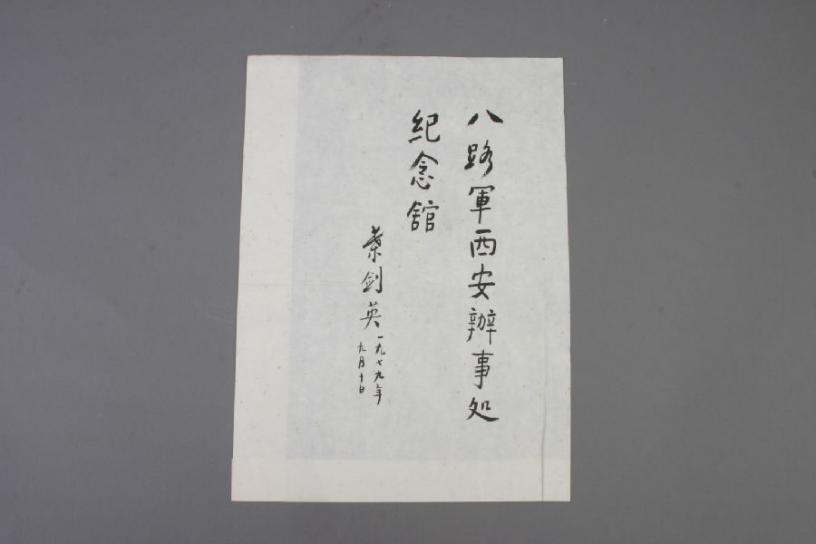 八路軍西安辦事処
紀念舘
葉剑英
一九七九年
九月十日